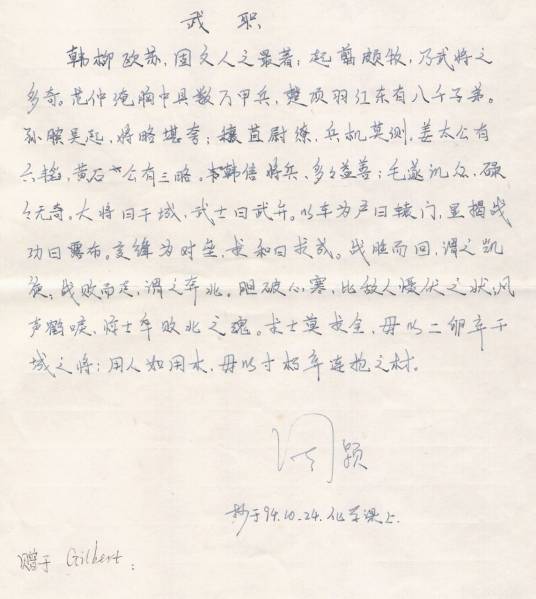 武职
韩柳欧苏，固文人之最著；起翦颇牧，乃武将之
多奇。范仲淹胸中具数万甲兵，楚项羽江东有八千子弟。
孙膑吴起，将略堪夸；穰苴尉缭，兵机莫测，姜太公有
六韬，黄石公有三略。韩信将兵，多多益善；毛遂讥众，碌
碌无奇。大将曰干城，武士曰武弁。以车为户曰辕门，显揭战
功曰露布。交锋为对垒，求和曰求成。战胜而回，谓之凯
旋；战败而走，谓之奔北。胆破心寒，比敌人慑伏之状；风
声鹤唳，惊士卒败北之魂。求士莫求全，毋以二卵弃干
城之将；用人如用木，毋以寸朽弃连抱之材。
周颖
抄于94.10.24.化学课上.
赠于 Gilbert: